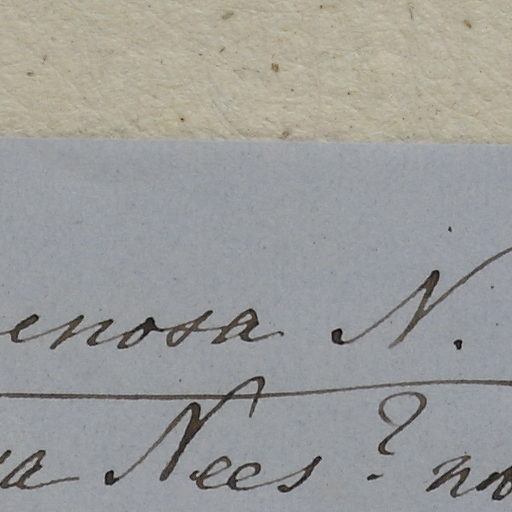 enosa N.
a Nees? no